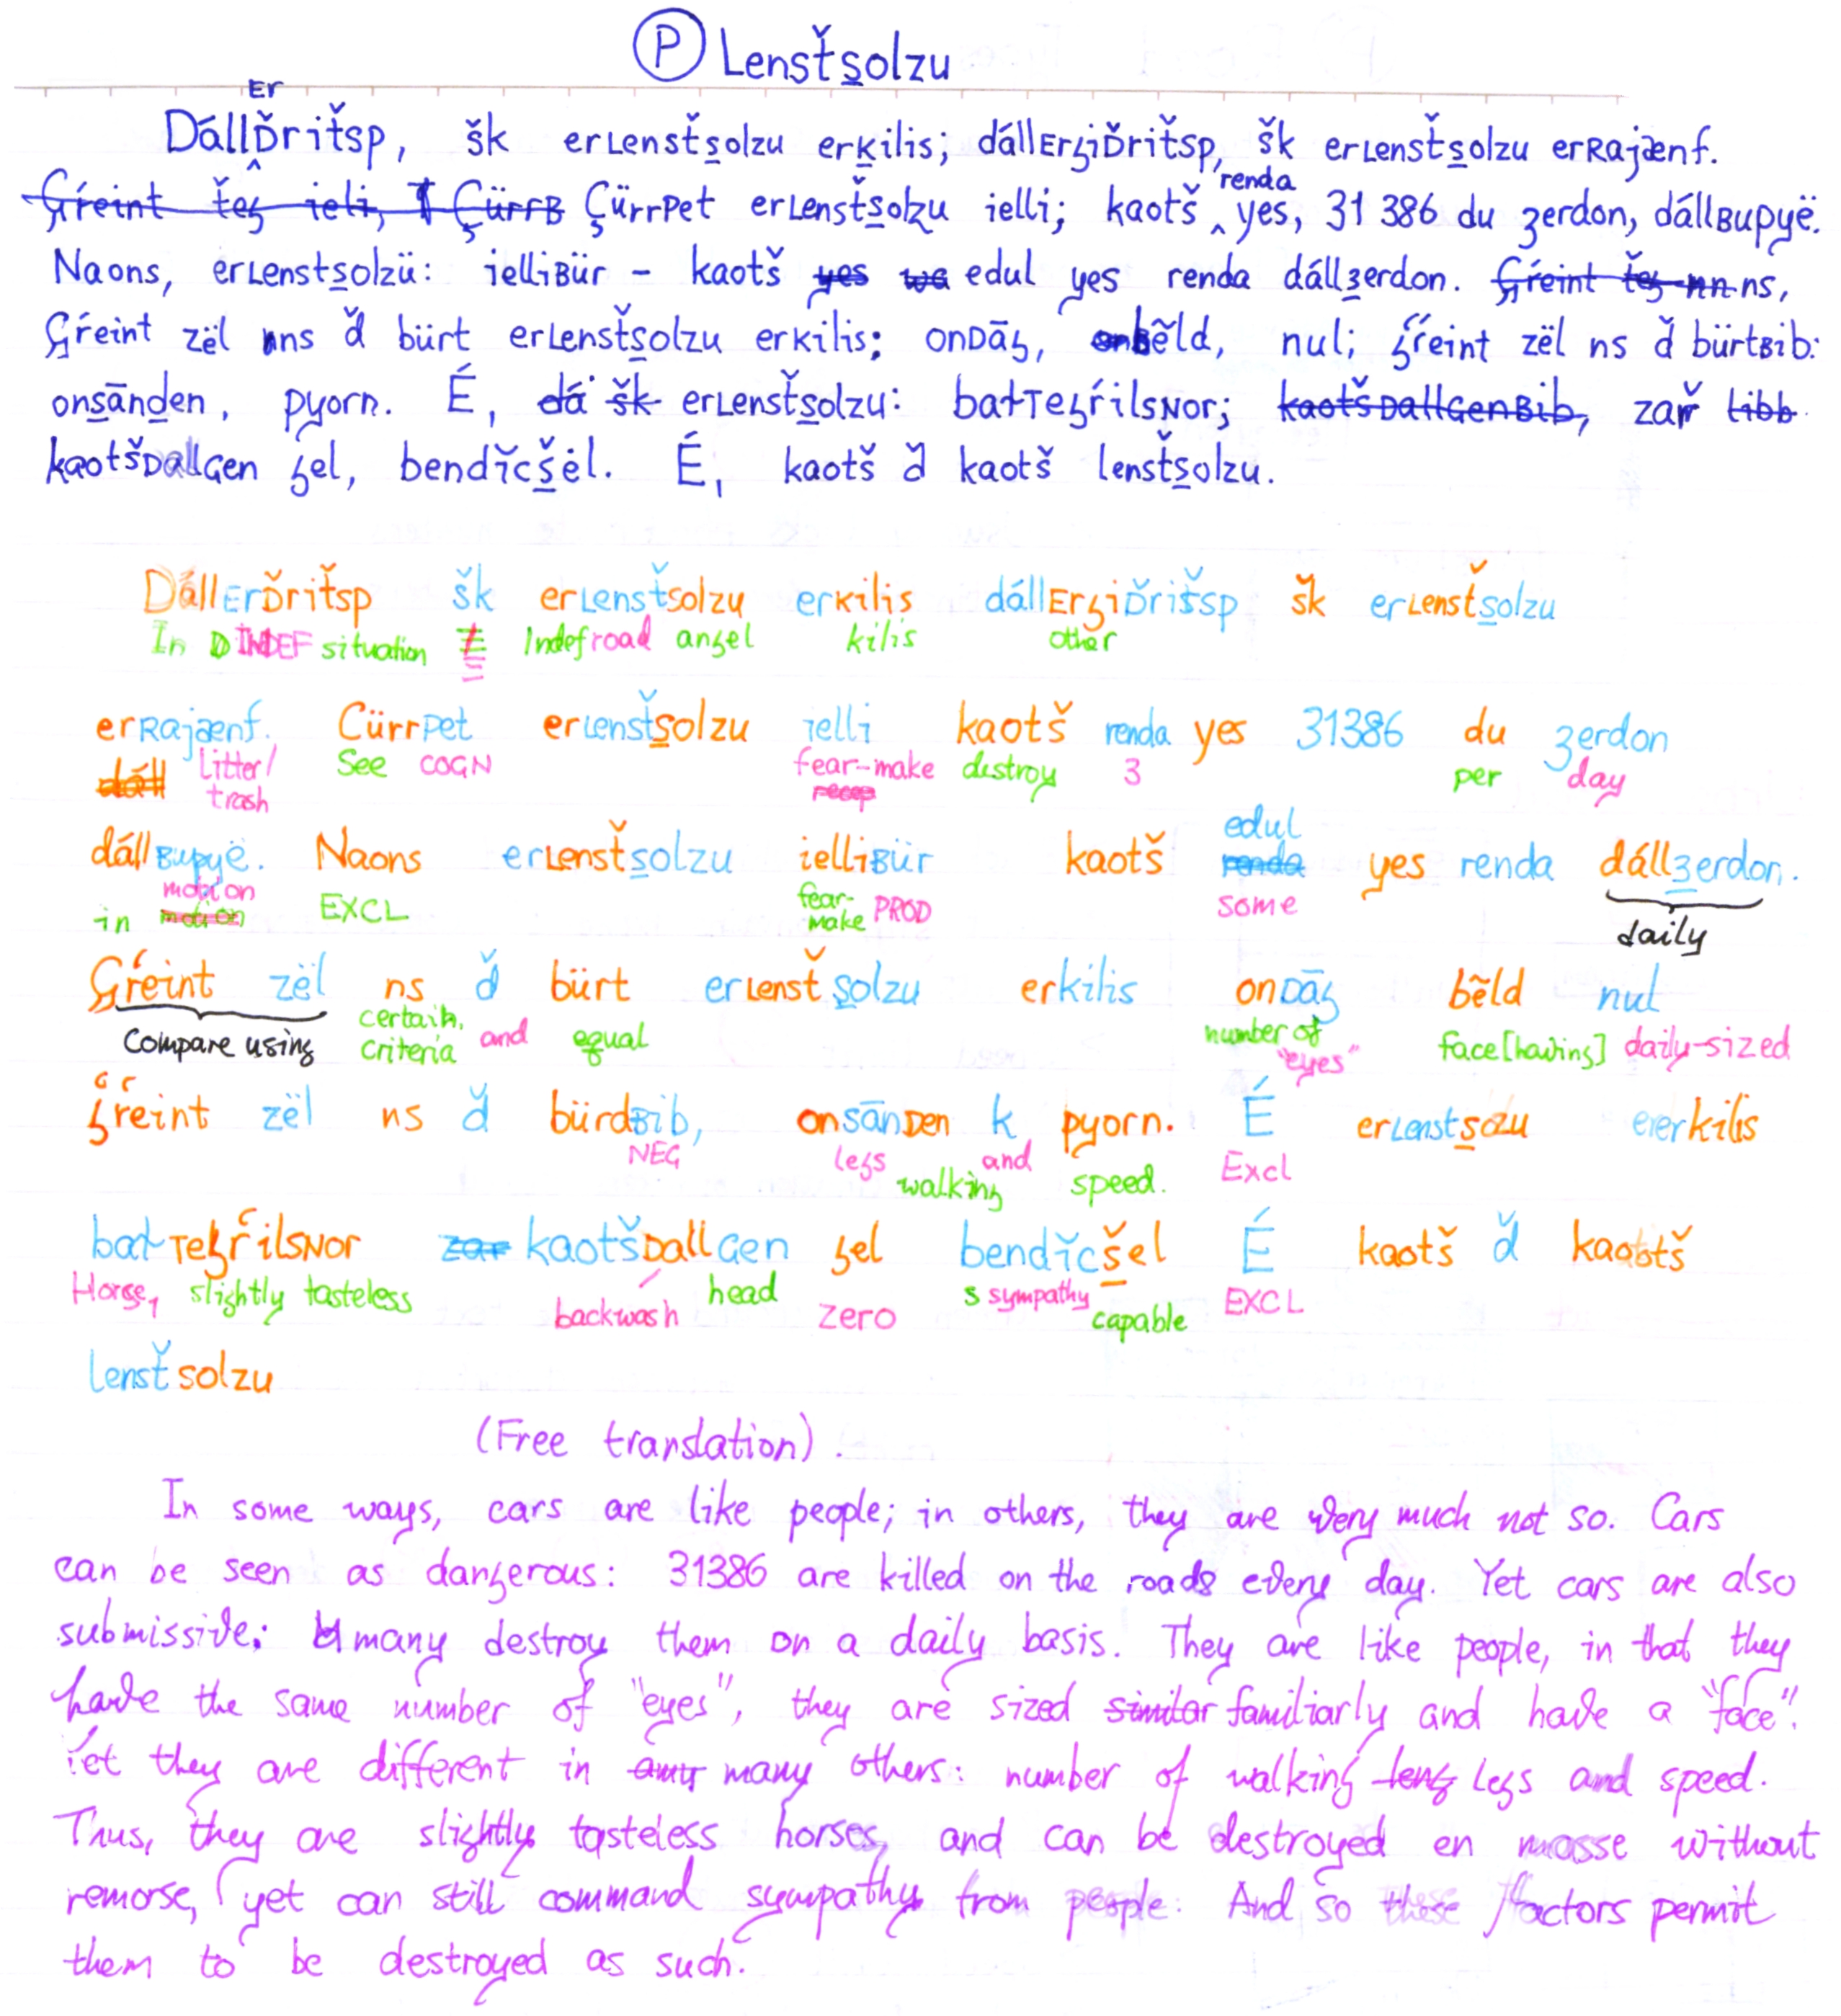 P Lensťs̱olzu
Er
DállĎriťsp, šk erLensťs̱olzu erḵilis; dállErʒiĎriťsp, šk erLensťs̱olzu erRajænf.
renda
ÇürrPet erLensťs̱olzu ielli; kaotš yes, 31 386 du ʒerdon, dállBupyë.
Naons, erLensts̱olzü: ielliBür – kaotš edul yes renda dállʒerdon. ns,
zël ns ď bürt erLensťs̱olzu erKilis: onDāʒ, bẽld, nul; zël ns ď bürtBib:
ons̱ānd̲en, pyorn. É, erLensťs̱olzu: batTeʒŕilsNor;
kaotšDallGen ʒel, bendĭcš̱ėl. É, kaotš ď kaotš lensťs̱olzu.
DállErĎriťsp šk erLensťsolzu erKilis dállErʒiĎritšsp šk erLensťs̱olzu
In INDEF situation Indef road angel kilis other
erRajænf. CürrPet erLensťs̱olzu ielli kaotš renda yes 31386 du ʒerdon
litter/ See COGN fear-make destroy 3 per day
trash
edul
dállBupyë. Naons erLensťs̱olzu ielliBür kaotš yes renda dállʒ̱erdon.
motion fear- some
in EXCL make PROD daily
zël ns ď bürt erLensťs̱olzu erkilis onDāʒ bẽld nul
certain and equal number of face[having] daily-sized
Compare using criteria "eyes"
zël ns ď bürdBib, onsānDen k pyorn. É erLensts̱olzu ererkilis
NEG legs and Excl
walking speed.
batTeʒŕilsNor kaotšDallGen ʒel bendĭcš̱el É kaotš ď kaotš
Horse, slightly tasteless head s sympathy EXCL
backwash zero capable
lensťsolzu
(Free translation).
In some ways, cars are like people; in others, they are very much not so. Cars
can be seen as dangerous: 31386 are killed on the roads every day. Yet cars are also
submissive: many destroy them on a daily basis. They are like people, in that they
have the same number of "eyes", they are sized familiarly and have a "face".
Yet they are different in many others: number of walking legs and speed.
Thus, they are slightly tasteless horses, and can be destroyed en masse without
remorse, yet can still command sympathy from people. And so these factors permit
them to be destroyed as such.